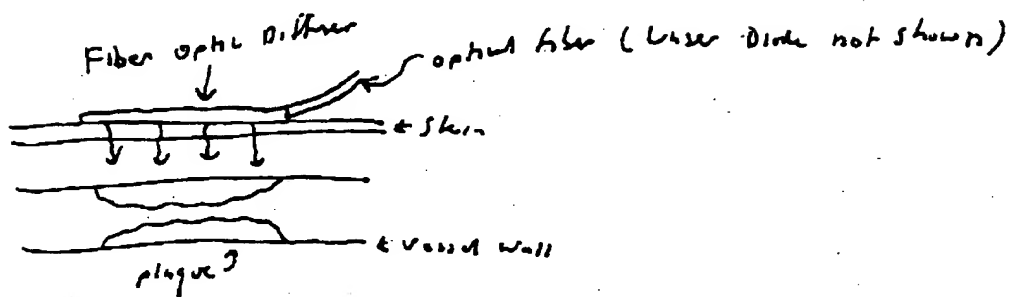 Fiber Optic Diffuser
optical fiber (Laser Diode not shown)
Skin
Vessel Wall
plaque